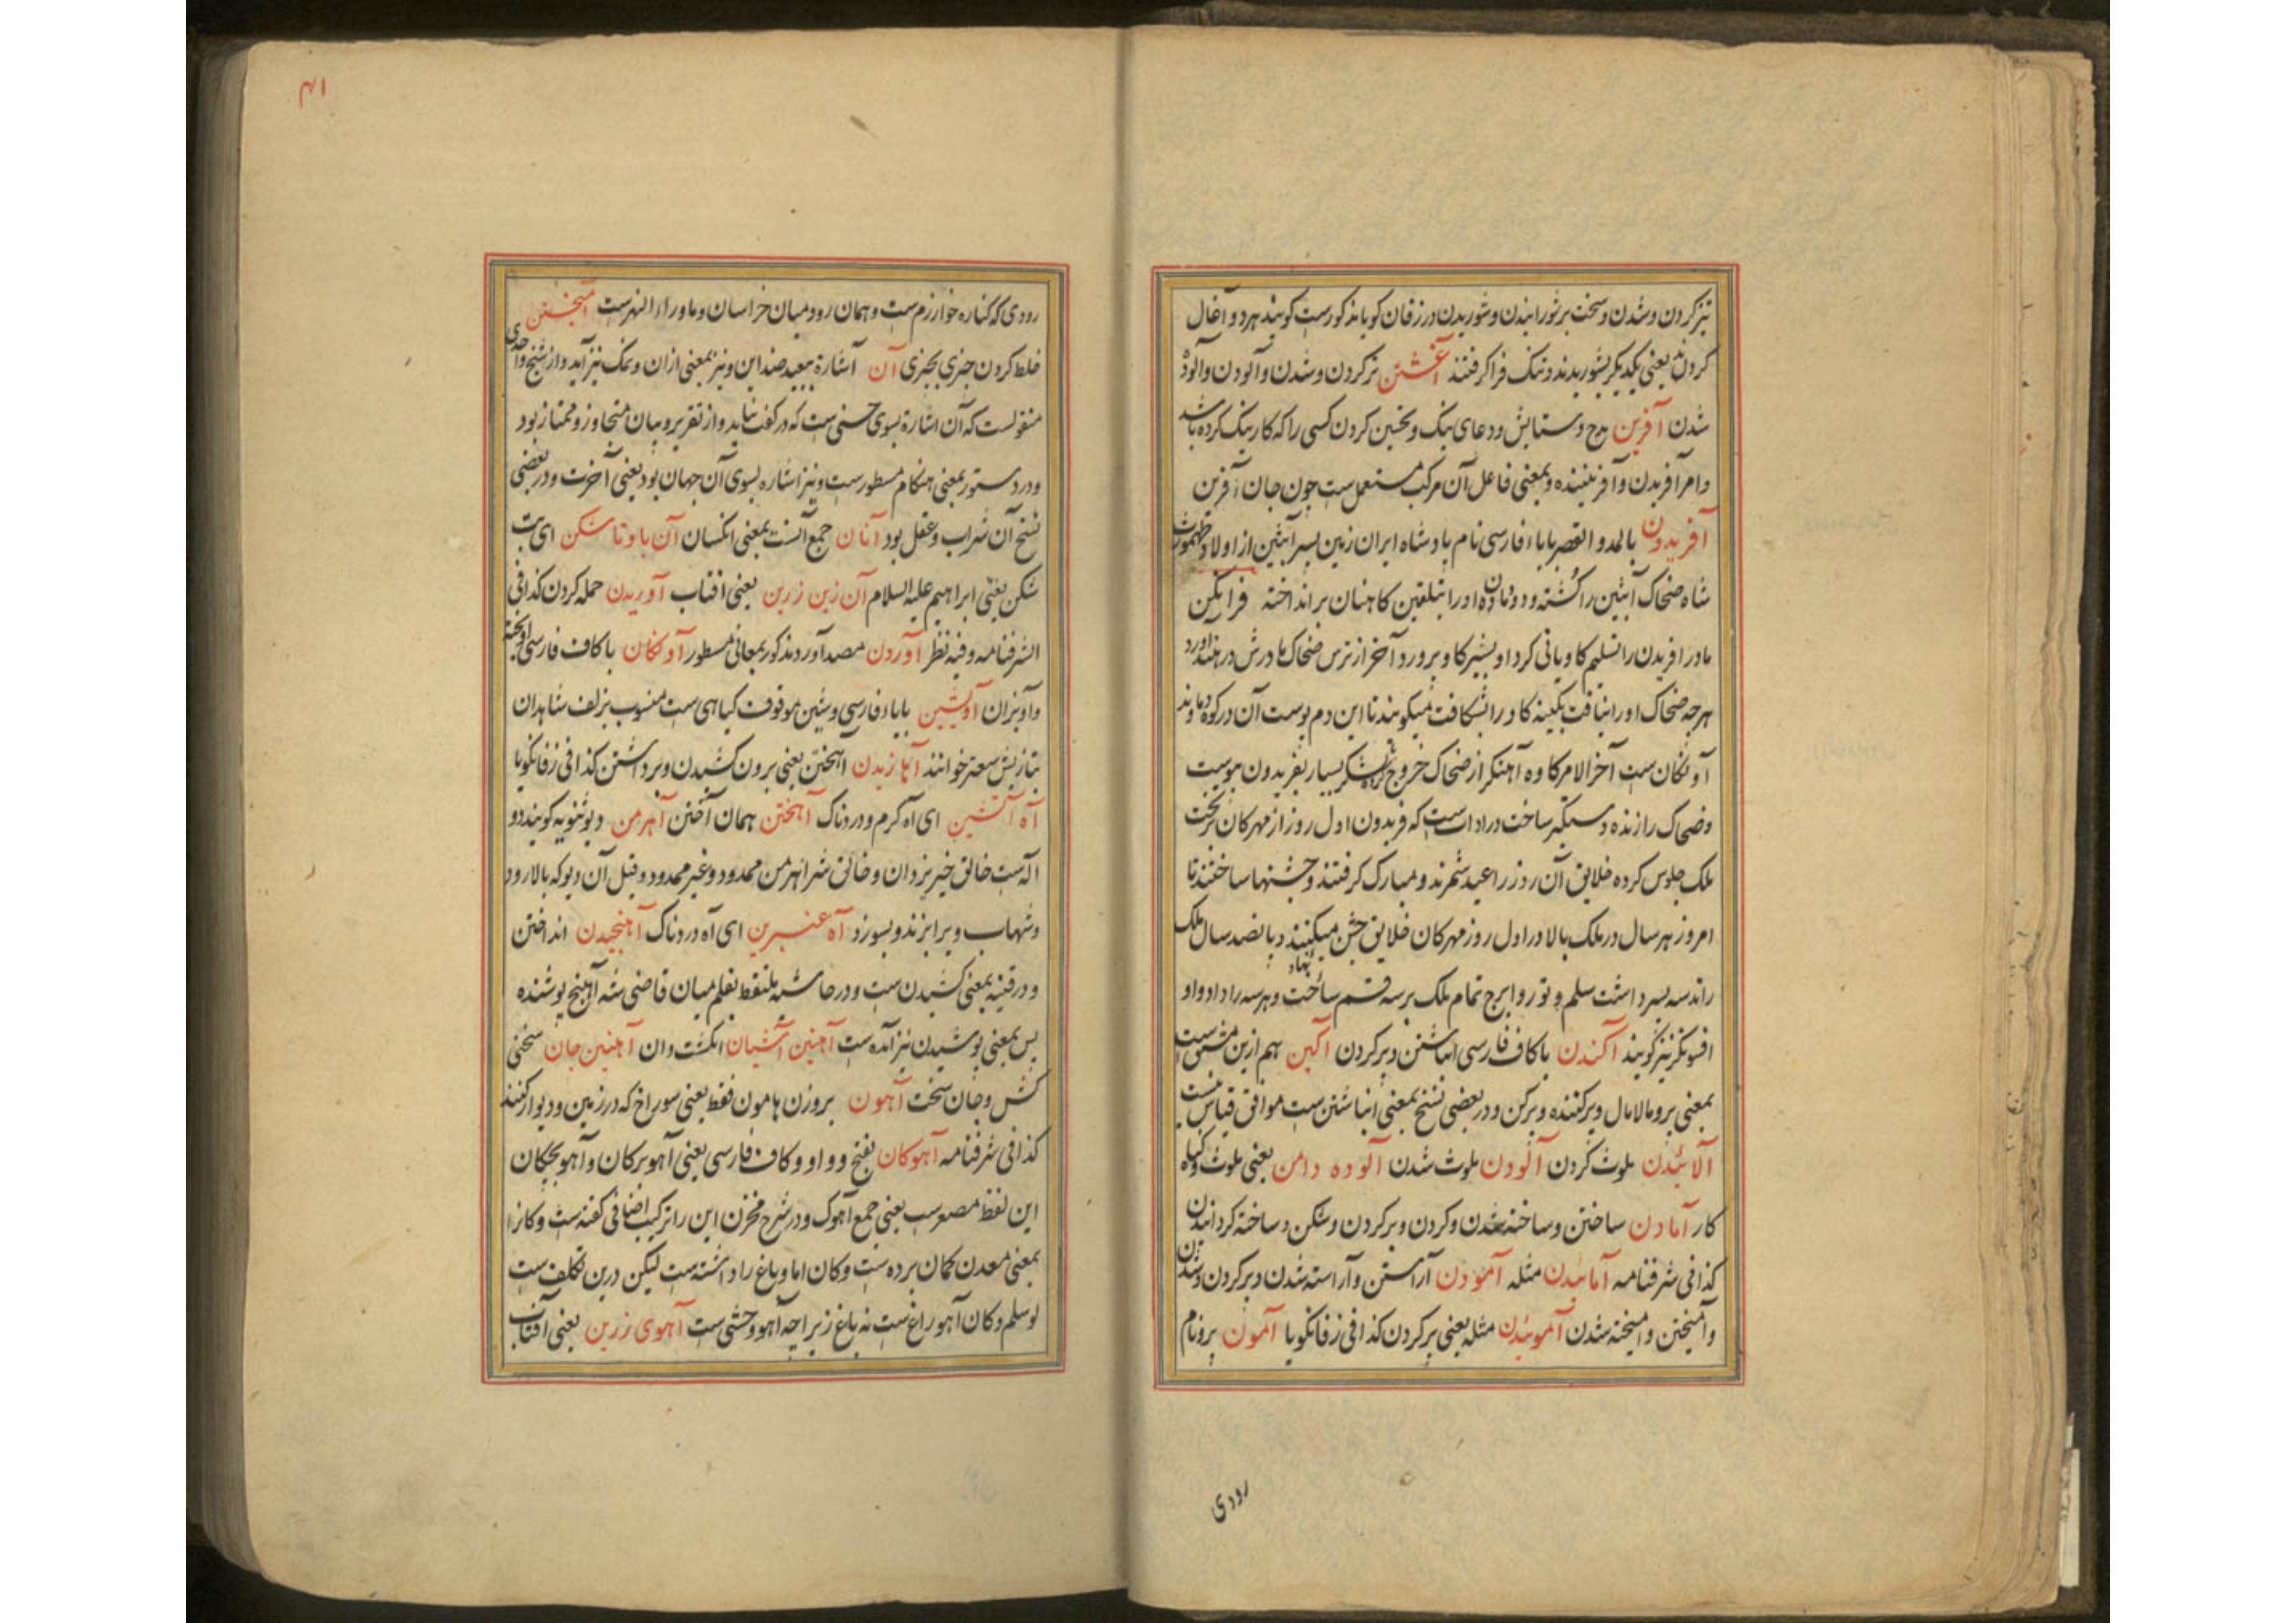 تیز کردن و شدن و سخت بر شورانیدن و شوریدن در زفان کویا مذکورست کویند هر دو آغال
کردند یعنی یکدیکر بشوریدند و تنک فرا کرفتند آغشتن تر کردن و شدن و آلودن و آلوده
شدن آفرین مدح و ستایش و دعای نیک و تحسین کردن کسی را که کار نیک کرده باشد
و امر آفریدن و آفریننده و بمعنی فاعل آن مرکب مستعملست چون جان آفرین
آفریدون بالمد و القصر باباء فارسی نام بادشاه ایران زمین پسر آبتین از اولاد طهمورث
شاه ضحاک آبتین را کشته و دودمان او را بتلقین کاهنان بر انداخته فرانکین
مادر افریدن را تسلیم کاوبانی کرد او بشیر کاو پرورد آخر از ترس ضحاک مادرش در هند آورد
هرچه ضحاک او را نیافت بکینه کاو را بشکافت میکویند تا این دم پوست آن در کوه دماوند
آونکان ست آخر الامر کاوه آهنکر از ضحاک خروج کرده لشکر بسیار بفریدون پیوست
و ضحاک را زنده دستکیر ساخت در ادات ست که فریدون اول روز از مهرکان بر تخت
ملک جلوس کرده خلایق آن روز را عید شمرند و مبارک کرفتند و جشنها ساختند تا
امروز هر سال در ملک بالا در اول روز مهرکان خلایق جشن میکنند و پانصد سال ملک
راند سه پسر داشت سلم و تور و ایرج تمام ملک بر سه قسم ساخت و هر سه را داد و او
افسونکر نیز کویند آکندن باکاف فارسی انباشتن و پر کردن آکین هم ازین مشتق ست
بمعنی پر و مالامال و پرکننده و پرکن و در بعضی نسخ بمعنی انباشتن ست موافق قیاس نیست
آلائیدن ملوث کردن آلودن ملوث شدن آلوده دامن یعنی ملوث و کناه
کار آمادن ساختن و ساخته شدن و کردن و پر کردن و شکن و ساخته کردانیدن
کذا فی شرفنامه آمائیدن مثله آمودن آراستن و آراسته شدن و پر کردن و شدن
و آمیختن و آمیخته شدن آموئیدن مثله یعنی پر کردن کذا فی زفانکویا آمون پر و نام
رودی
۴۱
رودی که کناره خوارزم ست و همان رود میان خراسان و ماوراء النهرست آمیختن
خلط کردن چیزی بچیزی آن اشارة ببعید ضد این و نیز بمعنی ازان و نمک نیز آید و از شیخ واحدی
منقولست که آن اشارة بسوی حسنی ست که در کفت نیاید و از تقریر و بیان متجاوز و ممتاز بود
و در دستور بمعنی هنکام مسطورست و نیز اشاره بسوی آن جهان بود یعنی آخرت و در بعضی
نسخ آن شراب و عقل بود آنان جمع آنست بمعنی انکسان آن باوتا شکن ای بت
شکن یعنی ابراهیم علیه السلام آن زین زرین یعنی افتاب آوریدن حمله کردن کذا فی
الشرفنامه و فیه نظر آوردن مصدر آورد مذکور بمعانی مسطور آونکان باکاف فارسی آویخته
و آویزان آویشین باباء فارسی و شین موقوف کیاهی ست منسوب بزلف شاهدان
بتازیش سعتر خوانند آهازیدن آهختن یعنی برون کشیدن و برداشتن کذا فی زفانکویا
آه آتشین ای آه کرم و دردناک آهختن همان آختن آهرمن دیو ثنویه کویند دو
اله ست خالق خیر یزدان و خالق شر اهرمن ممدود و غیر ممدود و قیل آن دیو که بالا رود
و شهاب ویرا بزند و بسوزد آه عنبرین ای آه دردناک آهنجیدن انداختن
و در قنیه بمعنی کشیدن ست و در حاشیه ملتقط بقلم میان قاضی شه آهنج پوشنده
پس بمعنی پوشیدن نیز آمده ست آهنین آشیان انکشت دان آهنین جان سختی
کش و جان سخت آهون بر وزن هامون فقط یعنی سوراخ که در زمین و دیوار کنند
کذا فی شرفنامه آهوکان بفتح و واو و کاف فارسی یعنی آهوبرکان و آهوبچکان
این لفظ مصغرست یعنی جمع آهوک و در شرح مخزن این را ترکیب اضافی کفته ست و کانرا
بمعنی معدن کمان برده ست و کان اما و باغ را داشته ست لیکن درین تکلف ست
لو سلم و کان آهو راغ ست نه باغ زیراچه آهو وحشی ست آهوی زرین یعنی آفتاب